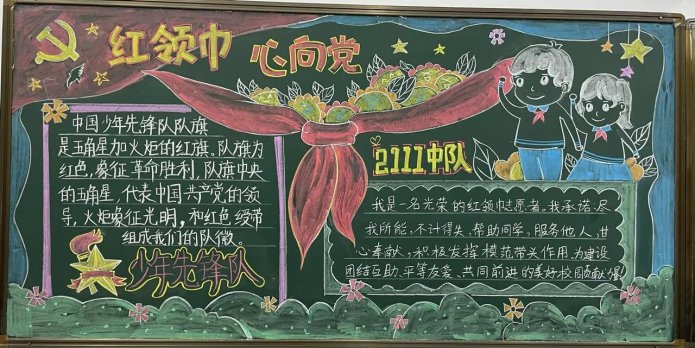 红领巾 心向党
中国少年先锋队队旗
是五角星加火炬的红旗。队旗为
红色,象征革命胜利,队旗中央
的五角星,代表中国共产党的领
导,火炬象征光明,和红色绶带
组成我们的队徽。
少年先锋队
2111中队
我是一名光荣的红领巾志愿者。我承诺:尽
我所能,不计得失、帮助同学,服务他人,甘
心奉献,积极发挥模范带头作用,为建设
团结互助、平等友爱、共同前进的美好校园贡献